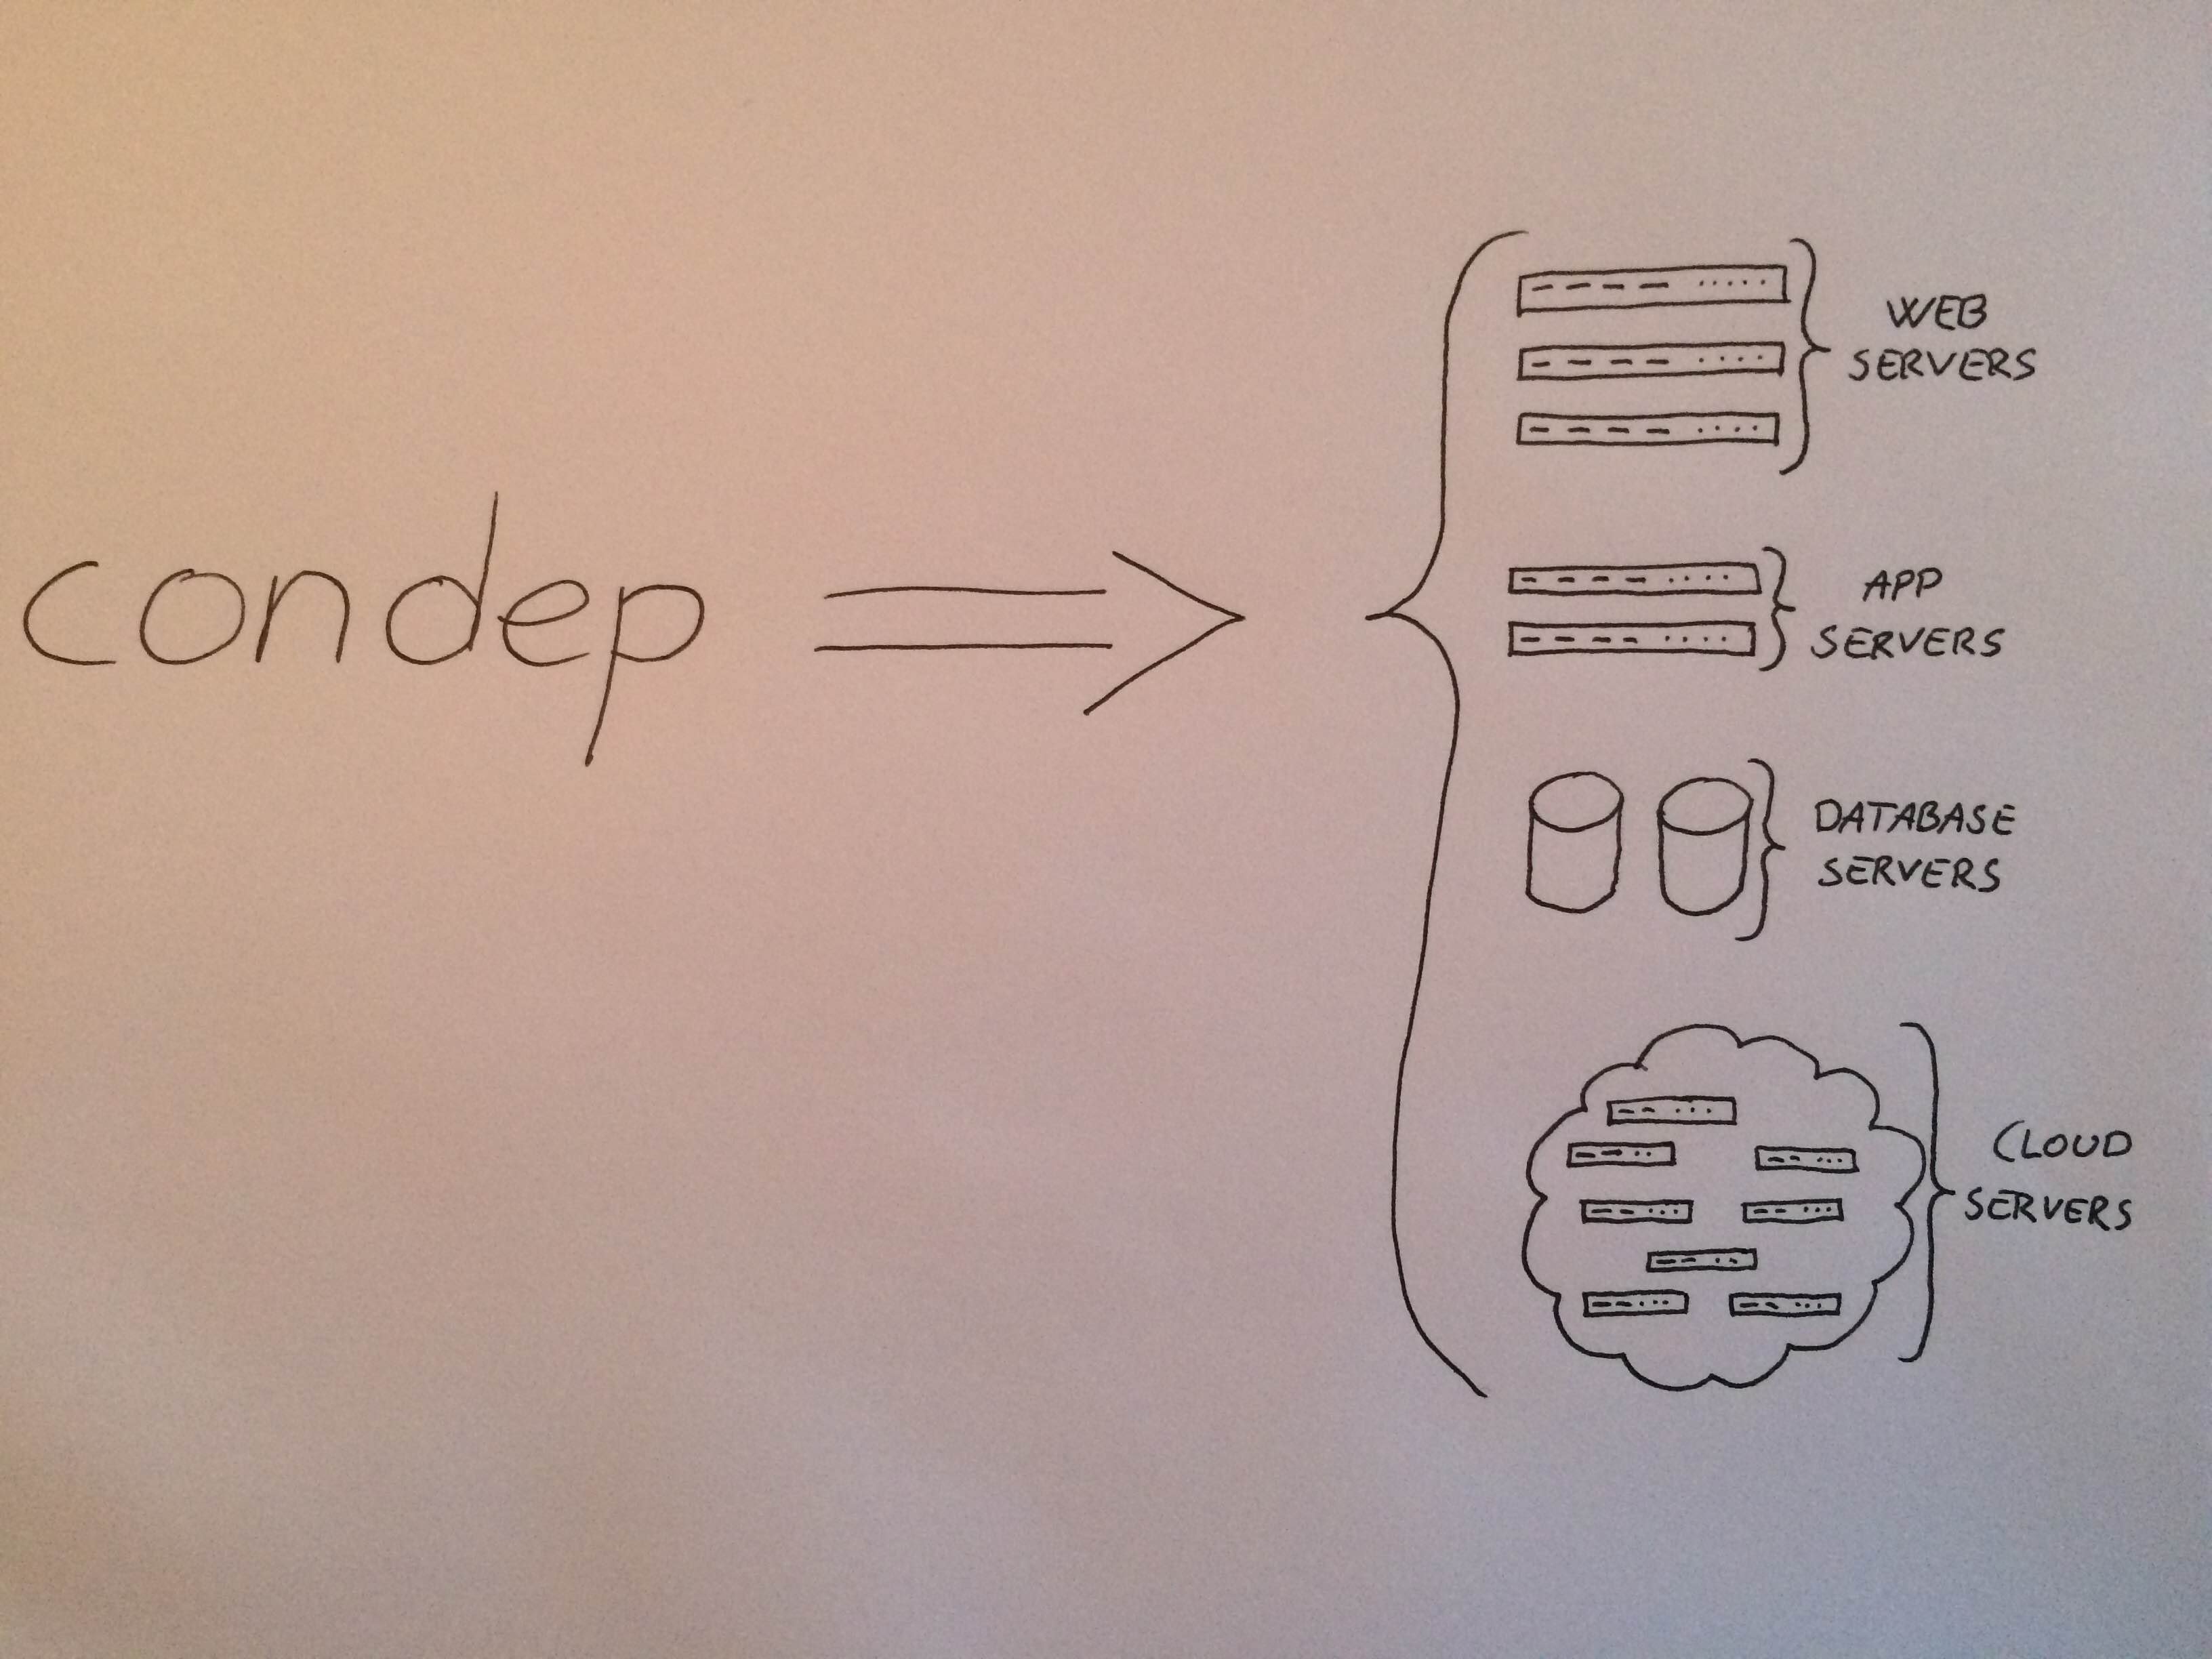 Condep
WEB
SERVERS
APP
SERVERS
DATABASE
SERVERS
CLOUD
SERVERS